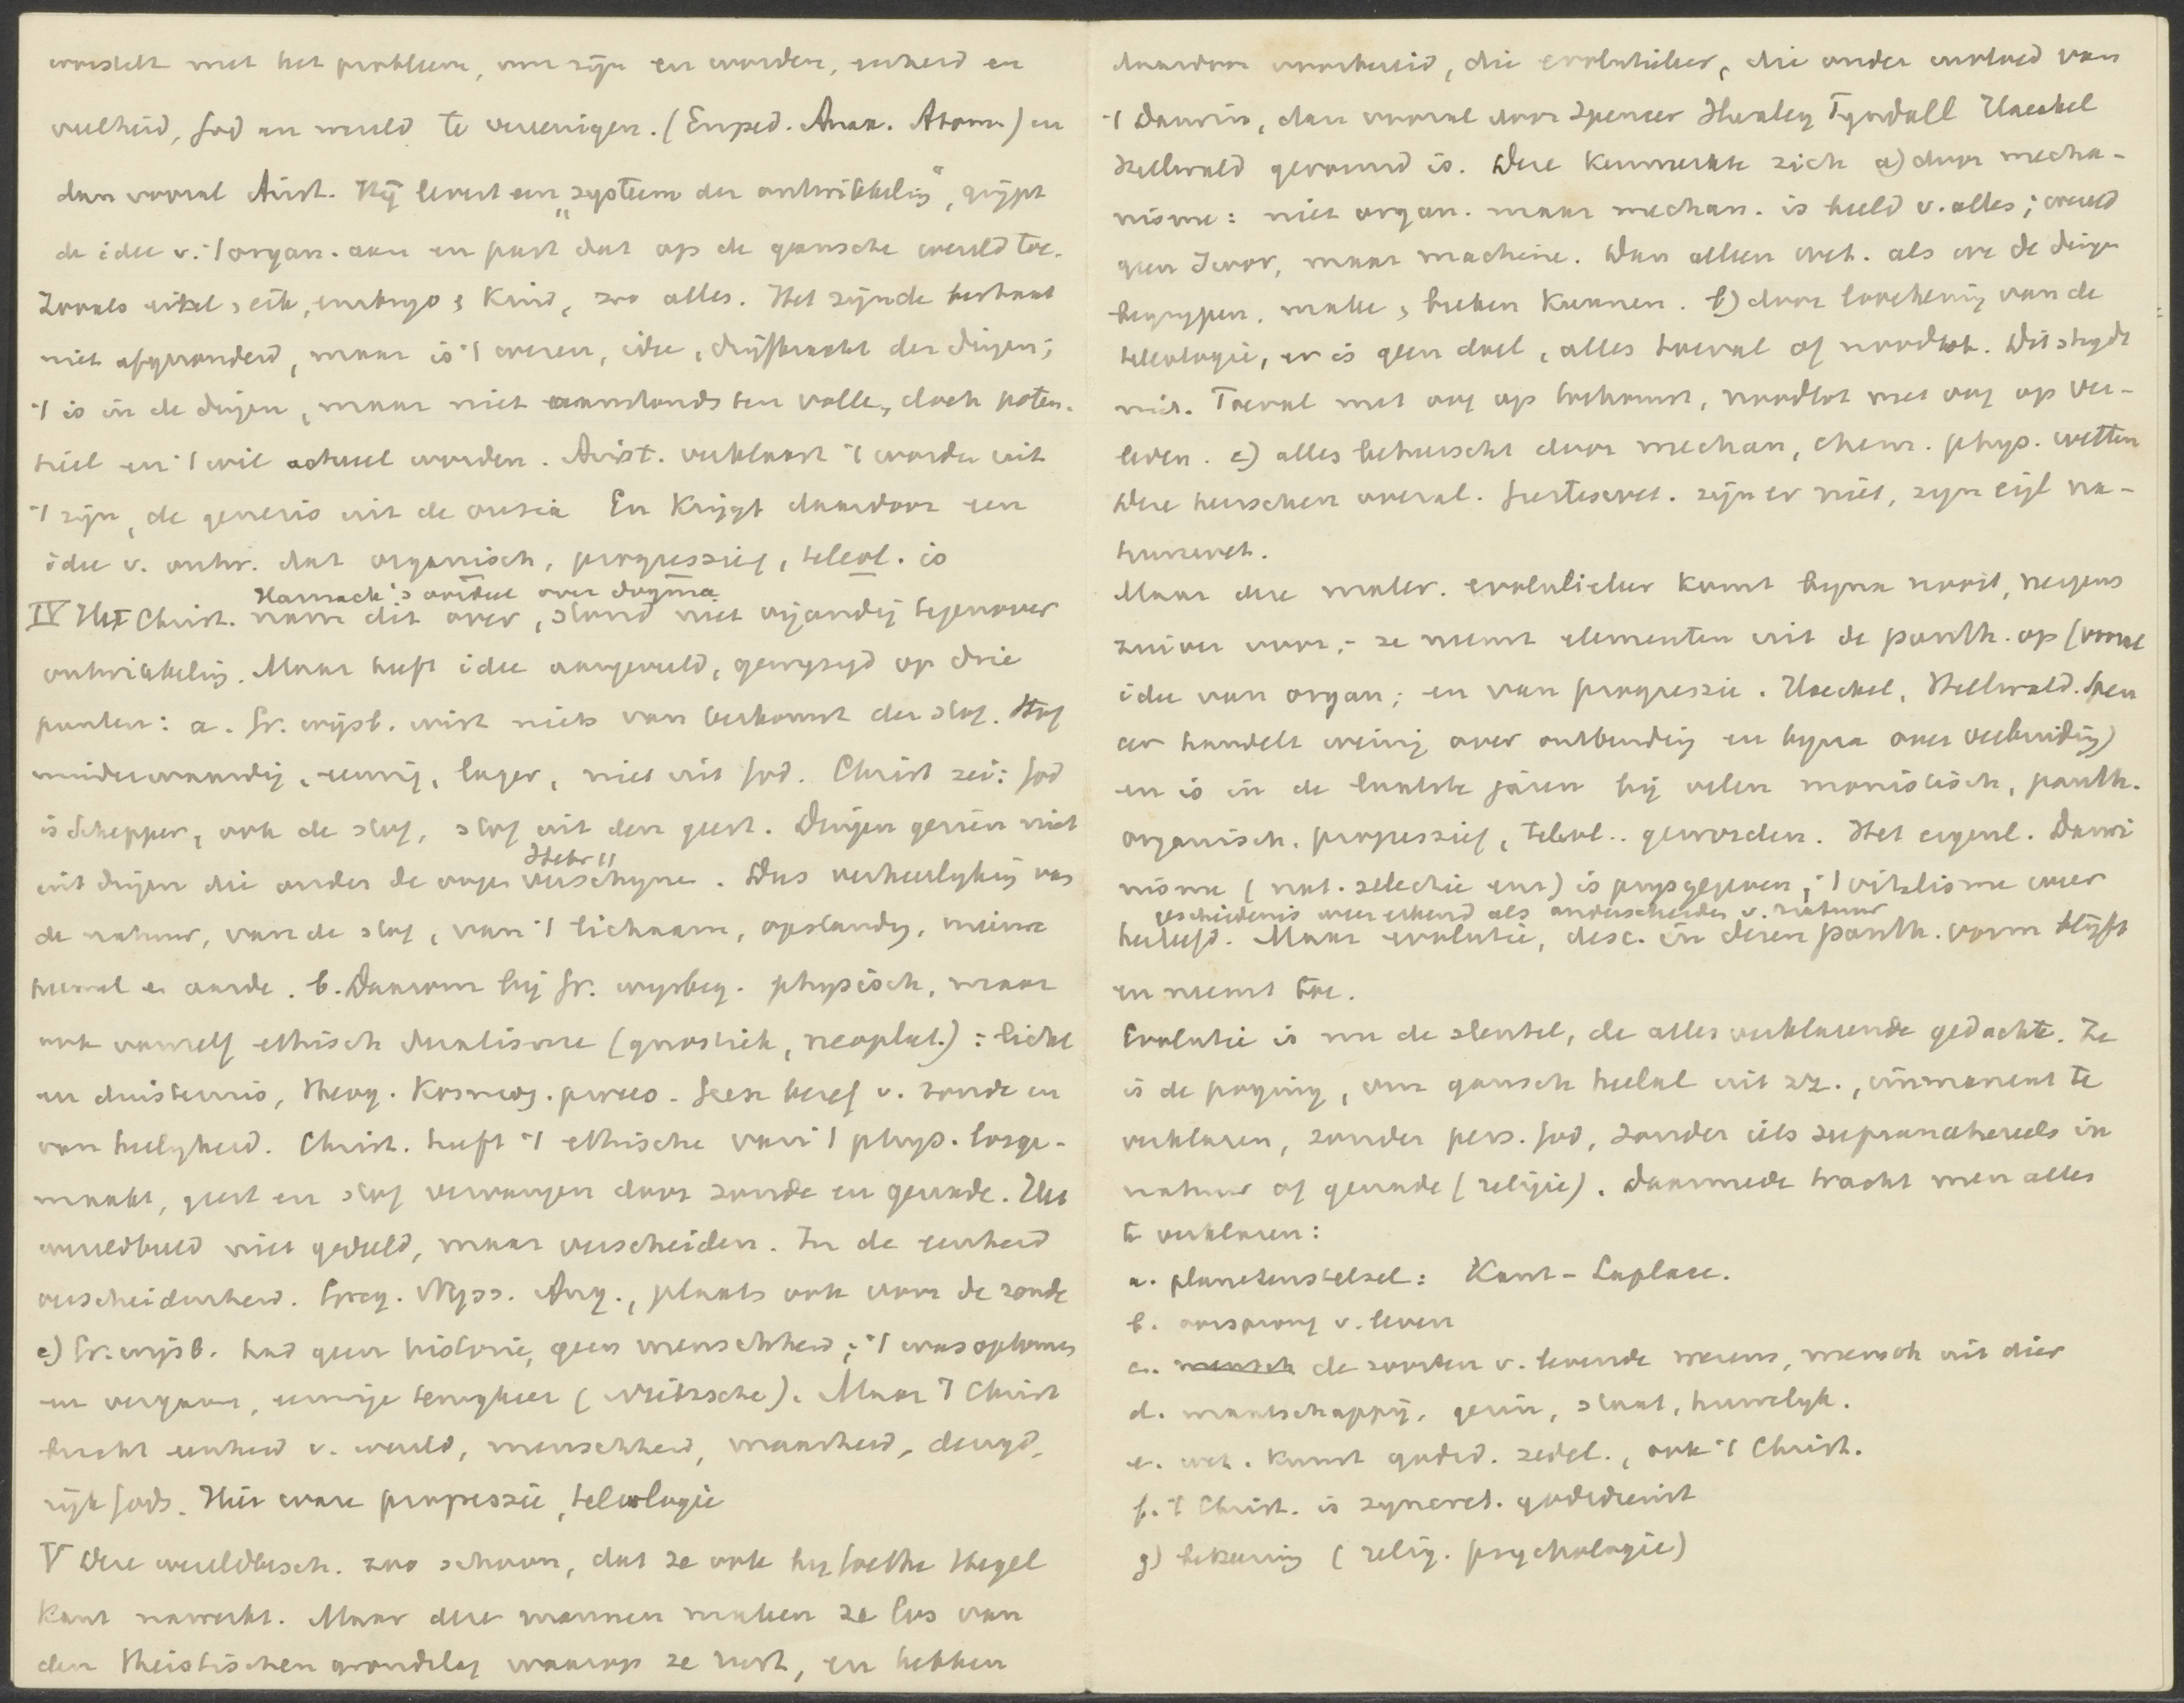 worstelt met het probleem, om zijn en worden, eenheid en
veelheid, God en wereld te vereenigen. (Emped. Anax. Atom.) en
dan vooral Arist. Hij levert een „systeem der ontwikkeling", grijpt
de idee v. 't organ. aan en past dat op de gansche wereld toe.
Zooals eikel, eik, embryo, kind, zoo alles. Het zijnde bestaat
niet afgezonderd, maar is 't wezen, idee, drijfkracht der dingen;
't is in de dingen, maar niet aanstonds ten volle, doch poten-
tieel en 't wil actueel worden. Arist. verklaart 't worden uit
't zijn, de genesis uit de ousia En krijgt daardoor een
idee v. ontw. dat organisch, progressief, teleol. is
Harnack's oordeel over dogma
IV Het Christ. nam dit over, stond niet vijandig tegenover
ontwikkeling. Maar heeft idee aangevuld, gewijzigd op drie
punten: a. Gr. wijsb. wist niets van herkomst der stof. Stof
minderwaardig, eeuwig, lager, niet uit God. Christ zei: God
is Schepper, ook de stof, stof uit den geest. Dingen gezien niet
Hebr 11
uit dingen die onder de oogen verschijnen. Dus verheerlijking van
de natuur, van de stof, van 't lichaam, opstanding, nieuwe
hemel en aarde. b. Daarom bij Gr. wijsbeg. physisch, maar
ook vanzelf ethisch dualisme (gnostiek, neoplat.): licht
en duisternis, theog. kosmog. proces. Geen besef v. zonde en
van heiligheid. Christ. heeft 't ethische van 't phys. losge-
maakt, geest en stof vervangen door zonde en genade. Het
wereldbeeld niet gedeeld, maar verscheiden. In de eenheid
verscheidenheid. Greg. Nyss. Aug., plaats ook voor de zonde
c) Gr. wijsb. had geen historie, geen menschheid; 't was opkomen
en vergaan, eeuwige terugkeer (Nietzsche). Maar 't Christ
bracht eenheid v. wereld, menschheid, waarheid, deugd,
rijk Gods. Hier ware progressie, teleologie
V Deze wereldbesch. zoo schoon, dat ze ook bij Goethe Hegel
Kant nawerkt. Maar deze mannen maken ze los van
den theistischen grondslag waarop ze rust, en hebben
daardoor voorbereid, die evolutieleer, die onder invloed van
't Darwin, dan vooral door Spencer Huxley Tyndall Haeckel
Hellwald gevormd is. Deze kenmerkte zich a) door mecha-
nisme: niet organ. maar mechan. is beeld v. alles; wereld
geen Zwov, maar machine. Dan alleen wet. als we de dingen
begrijpen, maken, breken kunnen. b) door loochening van de
teleologie, er is geen doel, alles toeval of noodlot. Dit strijdt
niet. Toeval met oog op toekomst, noodlot met oog op ver-
leden. c) alles beheerscht door mechan, chem. phys. wetten
Deze heerschen overal. Geesteswet. zijn er niet, zijn eigl na-
tuurwet.
Maar deze mater. evolutieleer komt bijna nooit, nergens
zuiver voor; - ze neemt elementen uit de panth. op (vooral
idee van organ; en van progressie. Haeckel, Hellwald. Spen
cer handelt weinig over ontbinding en bijna over verbinding)
en is in de laatste jaren bij velen monistisch, panth.
organisch, progressief, teleol.. geworden. Het eigenl. Darwi
nisme (nat. selectie enz) is prijsgegeven; 't vitalisme weer
geschiedenis weer erkend als onderscheiden v. natuur
herleefd. Maar evolutie, desc. in dezen panth. vorm blijft
en neemt toe.
Evolutie is nu de sleutel, de alles verklarende gedachte. Ze
is de poging, om gansch heelal uit zz., immanent te
verklaren, zonder pers. God, zonder iets supranatureels in
natuur of genade (religie). Daarmede tracht men alles
te verklaren:
a. planetenstelsel: Kant - Laplace.
b. oorsprong v. leven
c. mensch de soorten v. levende wezens, mensch uit dier
d. maatschappij, gezin, staat, huwelijk.
e. wet. kunst godsd. zedel., ook 't Christ.
f. 't Christ. is syncret. godsdienst
g) bekeering (relig. psychologie)